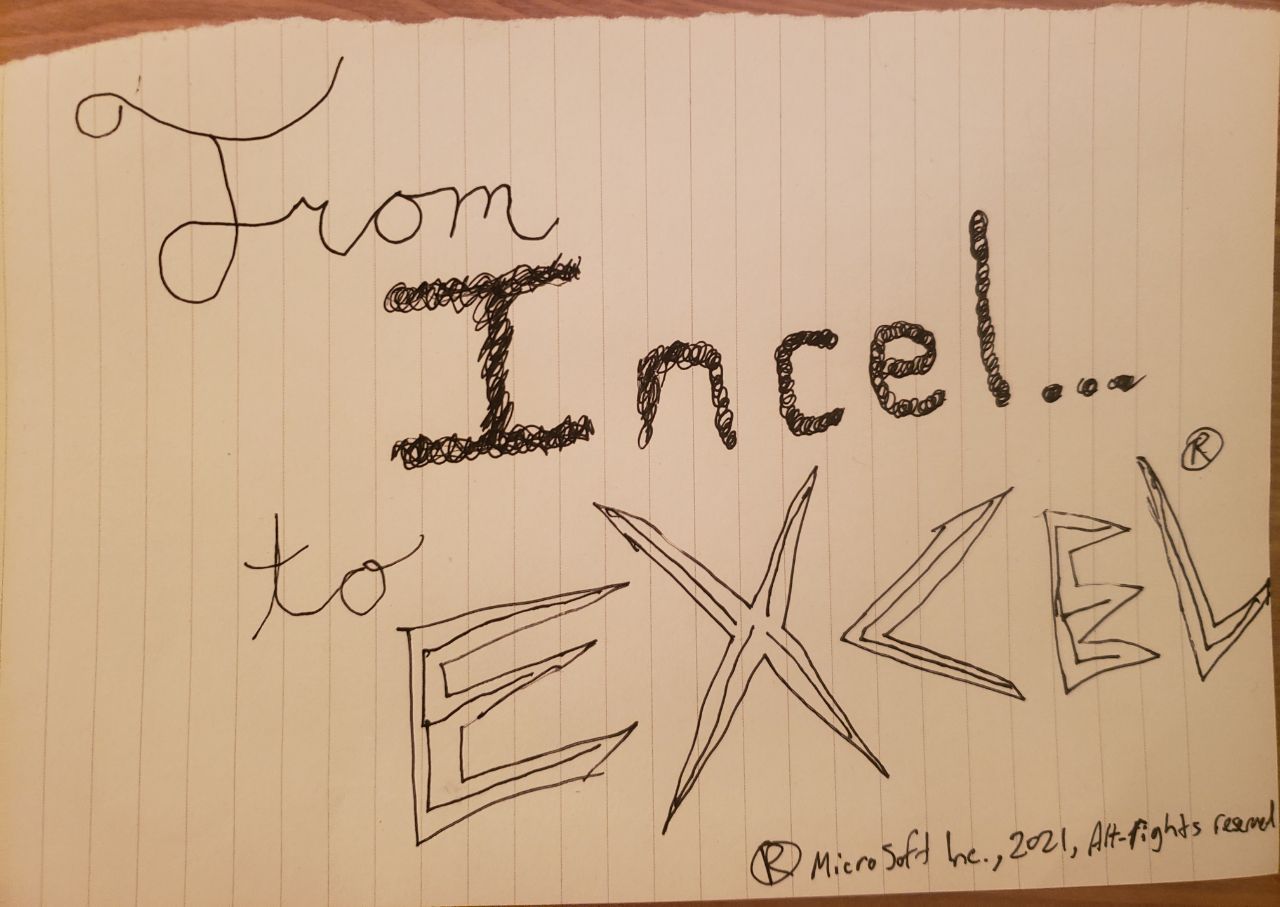 From
Incel...
to
EXCEL®
® MicroSoft Inc., 2021, Alt-rights reserved